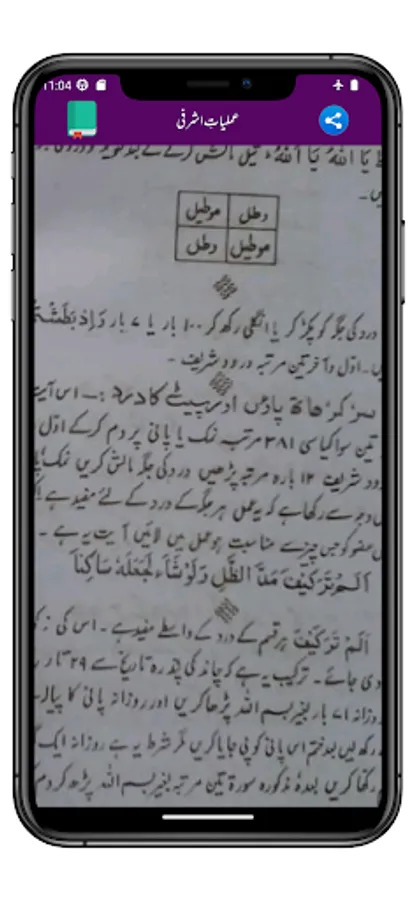 11:04
عملیات اشرفی
یَا اَللہُ یَا اَللہُ، تیل مالش کرنے کے بعد
یں۔
دطل موطیل
موطیل دطل
درد کی جگہ کو پکڑ کر یا انگلی رکھ کر ۱۰۰ بار یا ۷ بار وَاِذَ بَطَشْتُ
یں۔ اوّل و آخر تین مرتبہ درود شریف ۔
سر کر ہاتھ پاؤں اور پیٹ کا درد :۔ اس آیت
تین سو اکیاسی ۳۸۱ مرتبہ نمک یا پانی پر دم کر کے اوّل
ود شریف ۱۲ بارہ مرتبہ پڑھیں درد کی جگہ مالش کریں نمک پا
وجہ سے رکھا ہے کہ یہ عمل ہر جگہ کے درد کے لئے مفید ہے
عضو کو جس چیز سے مناسبت ہو عمل میں لائیں آیت یہ ہے ۔
اَلَمْ تَرَ کَیْفَ مَدَّ الظِّلَّ وَلَوْ شَآءَ لَجَعَلَہٗ سَاکِنًا
اَلَمْ تَرَ کَیْفَ ہر قسم کے درد کے واسطے مفید ہے ۔ اس کی
دی جائے ۔ ترکیب یہ ہے کہ چاند کی پندرہ تاریخ سے ۲۹ تا
روزانہ ۷۱ بار بغیر بسم اللہ پڑھا کریں اور روزانہ پانی کا پیالہ
رکھ لیں بعد ختم اس پانی کو پی جایا کریں مگر شرط یہ ہے روزانہ ایک
رکھا کریں بعدہٗ مذکورہ سورۃ تین مرتبہ بغیر بسم اللہ پڑھ کر دم